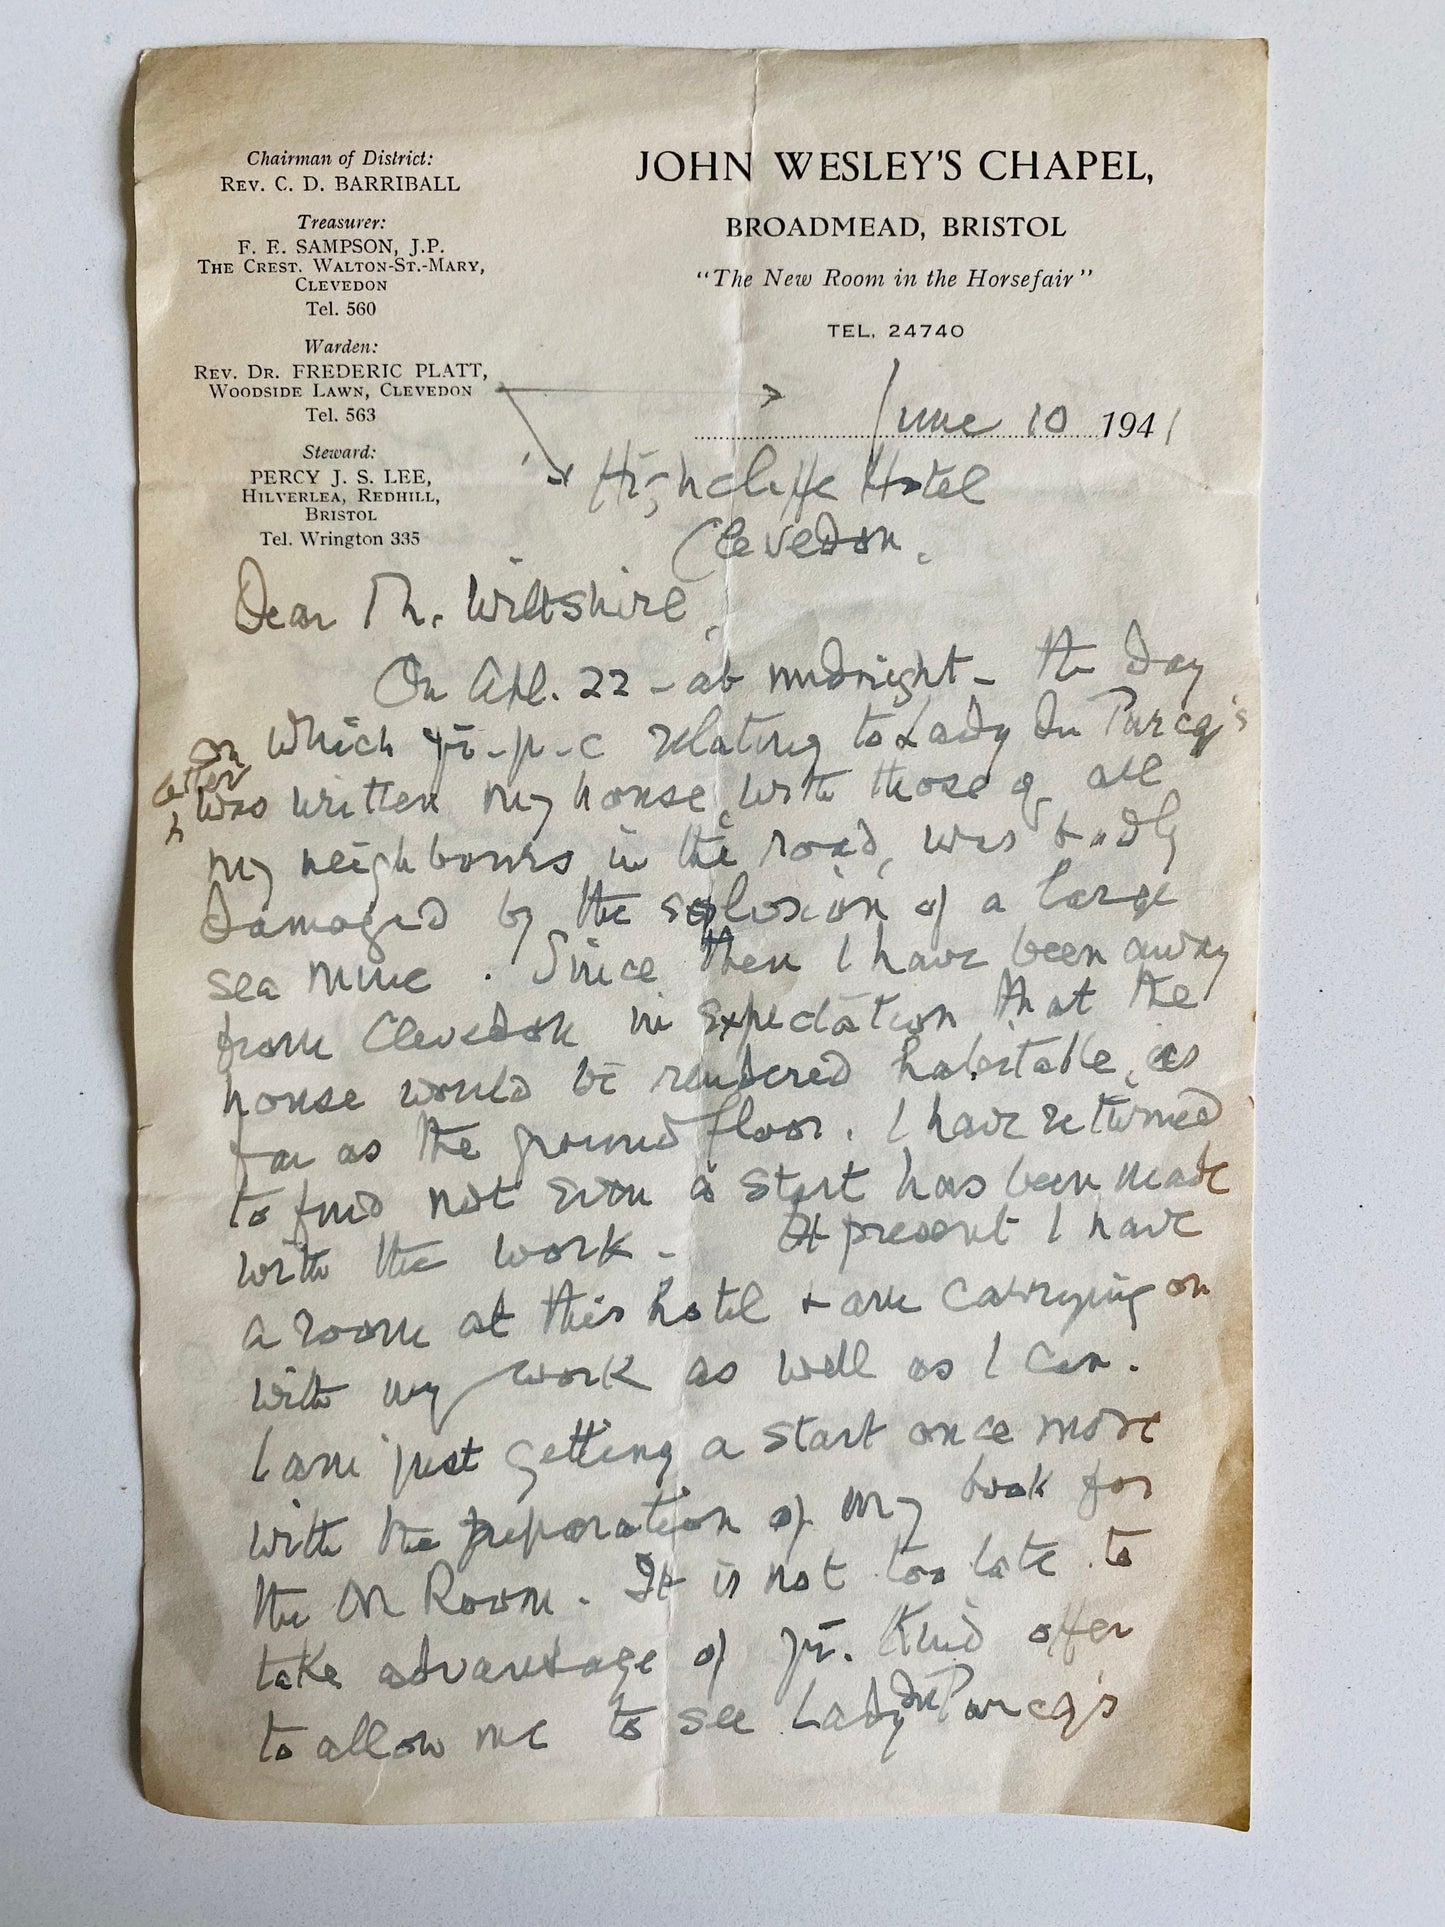 Chairman of District:
REV. C. D. BARRIBALL
Treasurer:
F. E. SAMPSON, J.P.
THE CREST. WALTON-ST.-MARY,
CLEVEDON
Tel. 560
Warden:
REV. DR. FREDERIC PLATT,
WOODSIDE LAWN, CLEVEDON
Tel. 563
Steward:
PERCY J. S. LEE,
HILVERLEA, REDHILL,
BRISTOL
Tel. Wrington 335
JOHN WESLEY'S CHAPEL,
BROADMEAD, BRISTOL
"The New Room in the Horsefair"
TEL. 24740
June 10 1941
Highcliffe Hotel
Clevedon.
Dear Mr. Wiltshire,
On Apl. 22 - at midnight - the day
on which yr. p-c relating to Lady Du Parcq's
letter
was written my house, with those of all
my neighbours in the road, was badly
damaged by the explosion of a large
sea mine. Since then I have been away
from Clevedon in expectation that the
house would be rendered habitable, as
far as the ground floor. I have returned
to find not even a start has been made
with the work - At present I have
a room at this hotel & am carrying on
with my work as well as I can.
I am just getting a start once more
with the preparation of my book for
the Room. It is not too late to
take advantage of yr. kind offer
to allow me to see Lady Du Parcq's